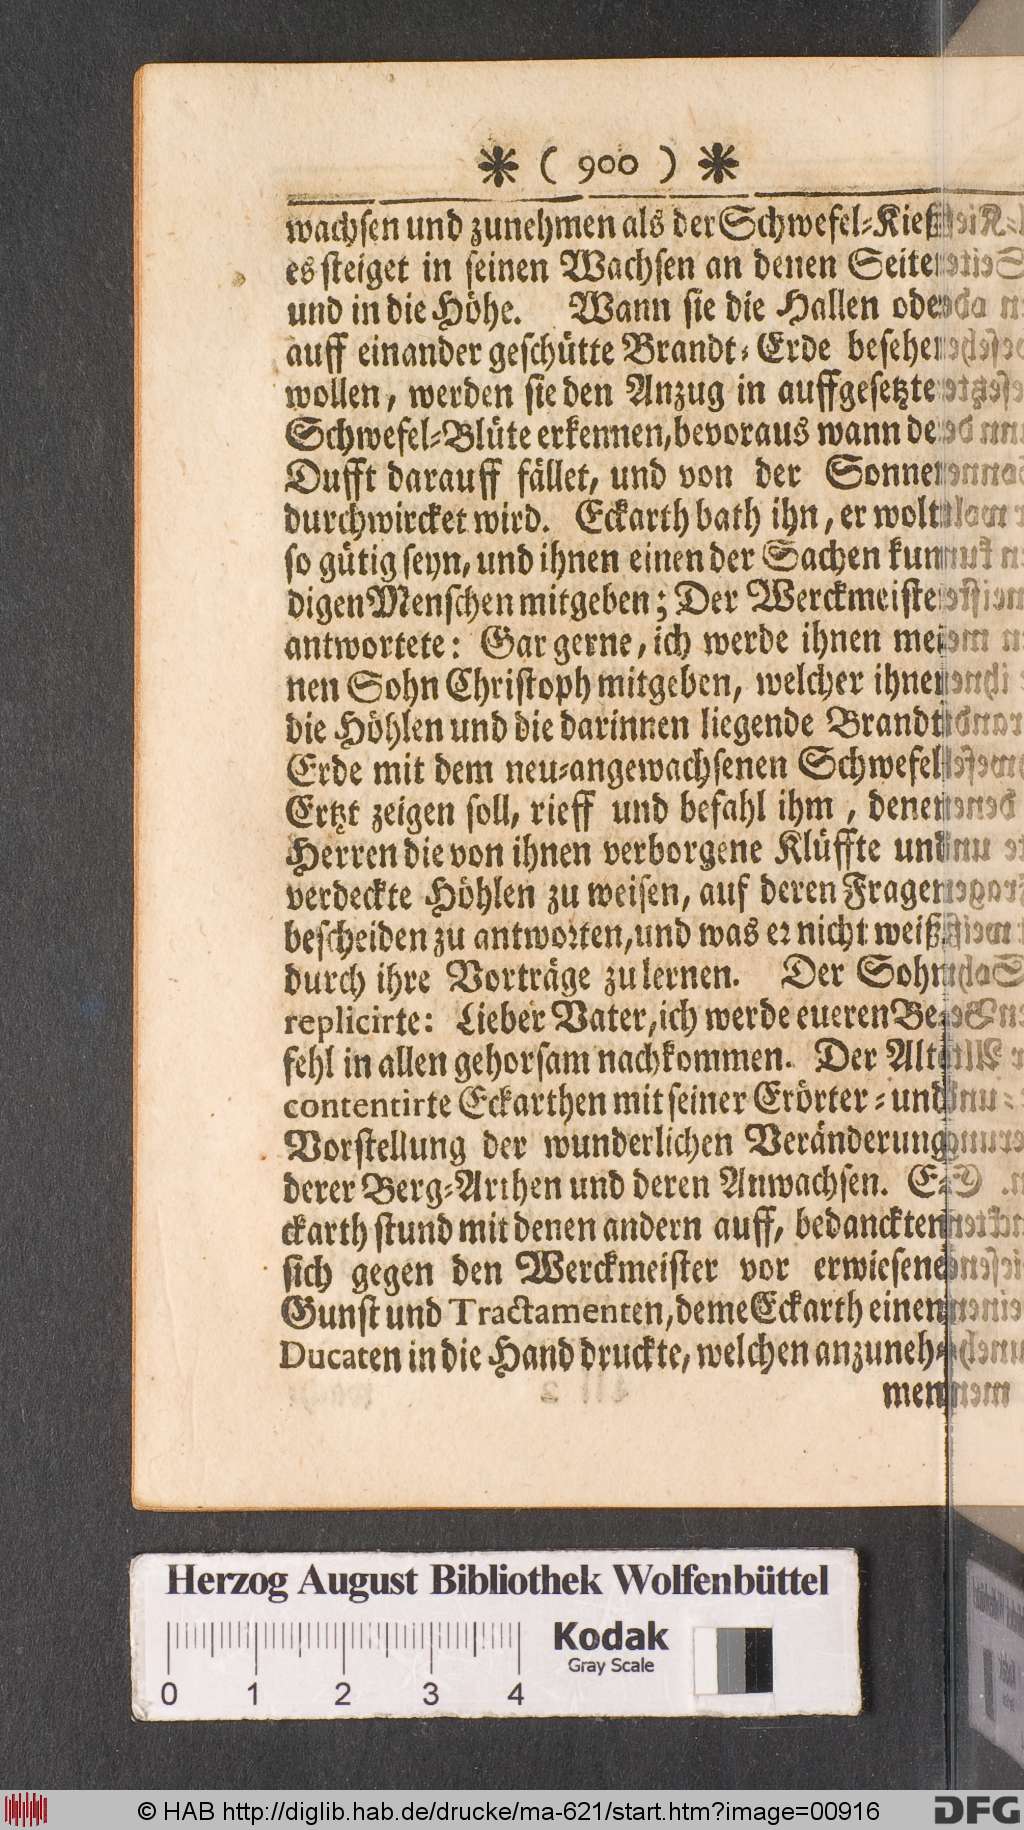 * ( 900 ) *
wachsen und zunehmen als der Schwefel-Kieß
es steiget in seinen Wachsen an denen Seiten
und in die Höhe. Wann sie die Hallen oder
auff einander geschütte Brandt-Erde besehen
wollen, werden sie den Anzug in auffgesetzter
Schwefel-Blüte erkennen, bevoraus wann der
Dufft darauff fället, und von der Sonnen
durchwircket wird. Eckarth bath ihn, er wolte
so gütig seyn, und ihnen einen der Sachen kun-
digen Menschen mitgeben; Der Werckmeister
antwortete: Gar gerne, ich werde ihnen mei-
nen Sohn Christoph mitgeben, welcher ihnen
die Höhlen und die darinnen liegende Brandt-
Erde mit dem neu-angewachsenen Schwefel-
Ertzt zeigen soll, rieff und befahl ihm, denen
Herren die von ihnen verborgene Klüffte und
verdeckte Höhlen zu weisen, auf deren Fragen
bescheiden zu antworten, und was er nicht weiß,
durch ihre Vorträge zu lernen. Der Sohn
replicirte: Lieber Vater, ich werde eueren Be-
fehl in allen gehorsam nachkommen. Der Alte
contentirte Eckarthen mit seiner Erörter- und
Vorstellung der wunderlichen Veränderung
derer Berg-Arthen und deren Anwachsen. E-
ckarth stund mit denen andern auff, bedanckten
sich gegen den Werckmeister vor erwiesene
Gunst und Tractamenten, deme Eckarth einen
Ducaten in die Hand druckte, welchen anzuneh-
men
Herzog August Bibliothek Wolfenbüttel
Kodak
Gray Scale
0 1 2 3 4
© HAB http://diglib.hab.de/drucke/ma-621/start.htm?image=00916
DFG